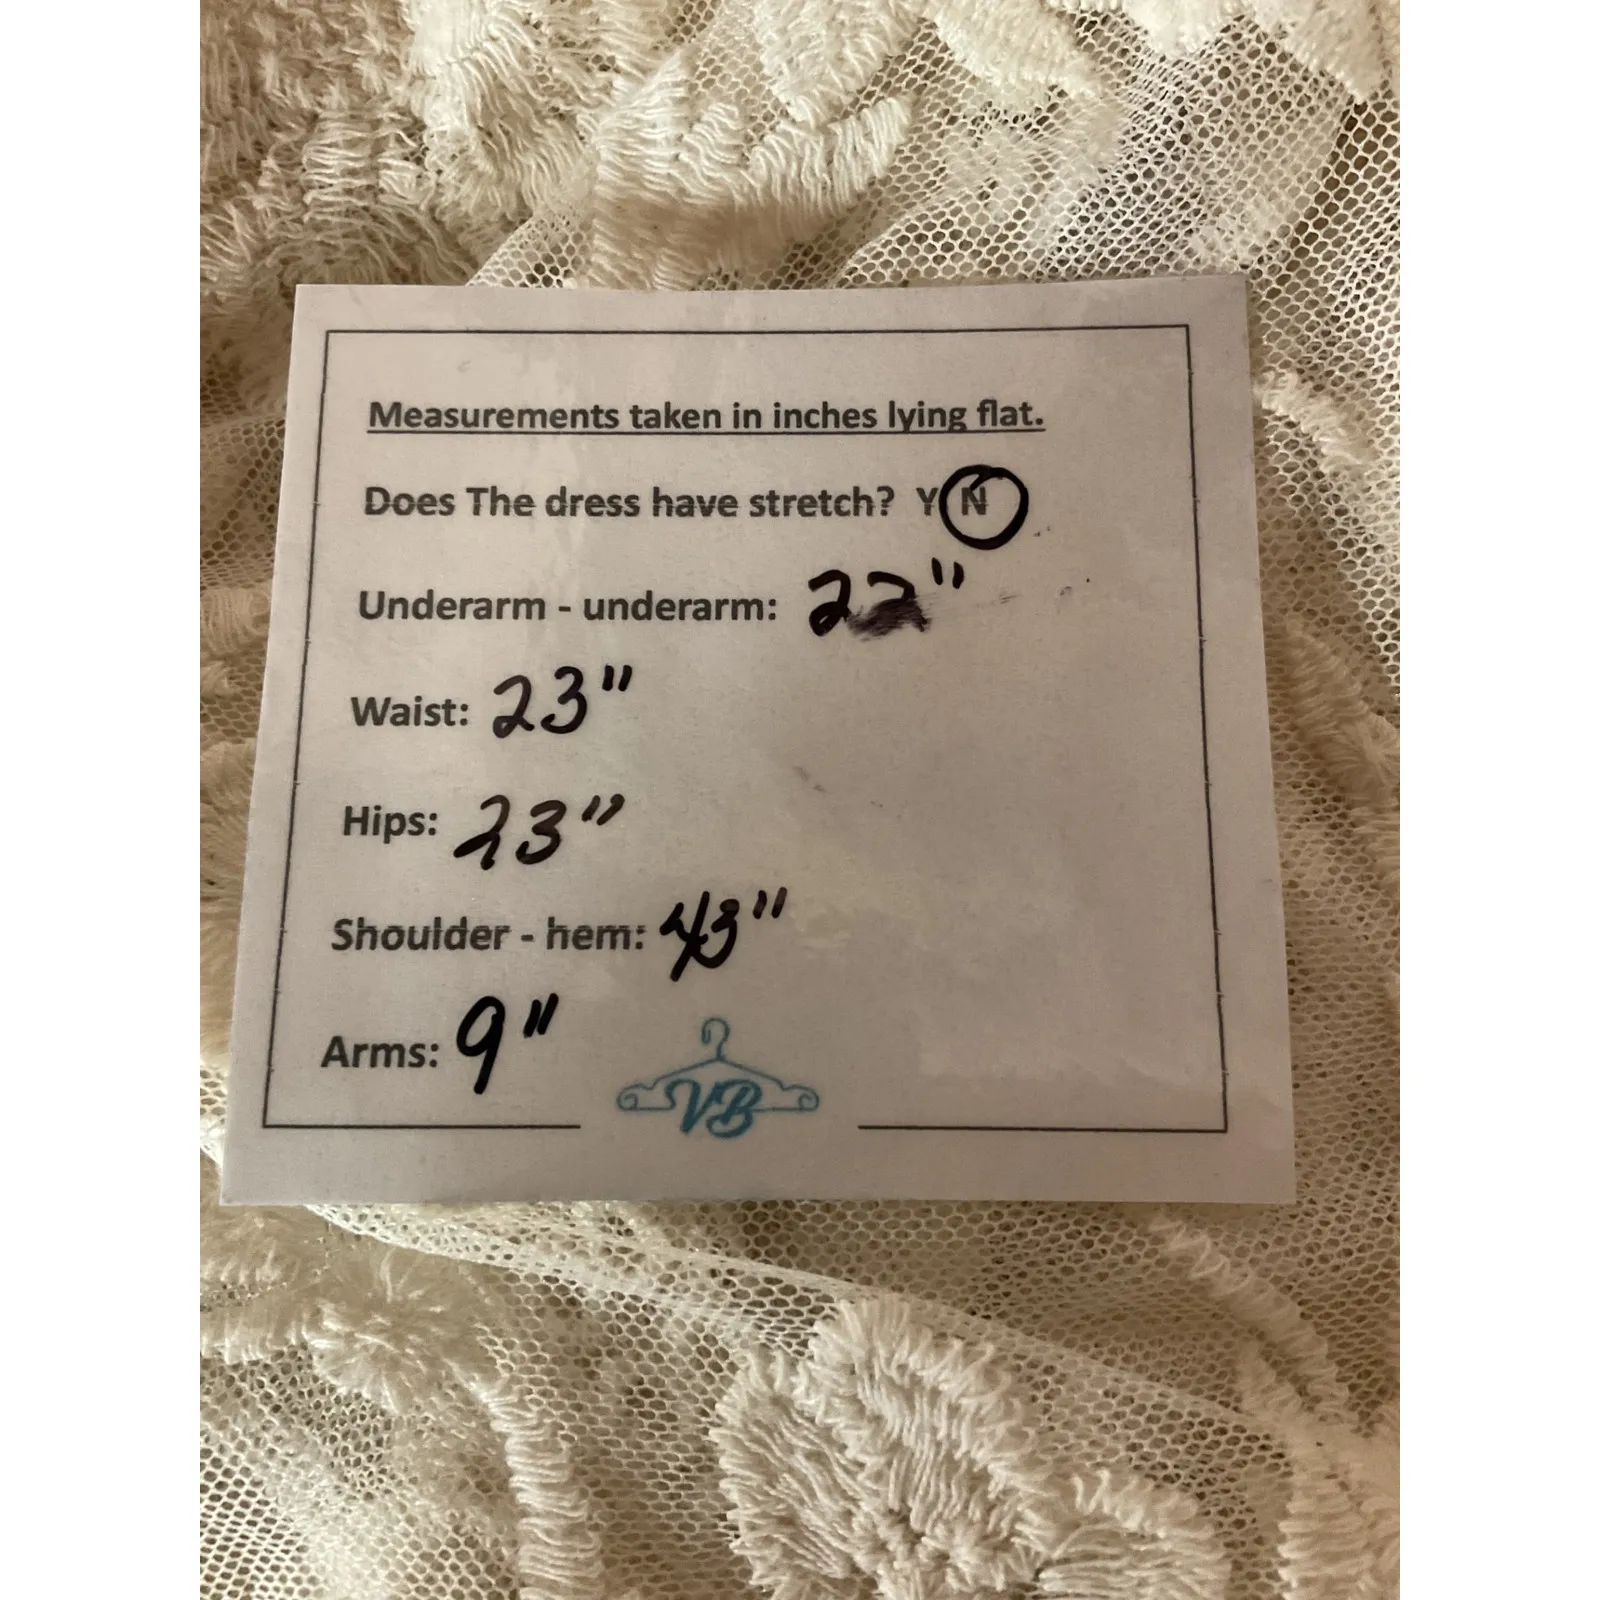 Measurements taken in inches lying flat.
Does The dress have stretch? Y N
Underarm - underarm: 22"
Waist: 23"
Hips: 23"
Shoulder - hem: 43"
Arms: 9"
VB